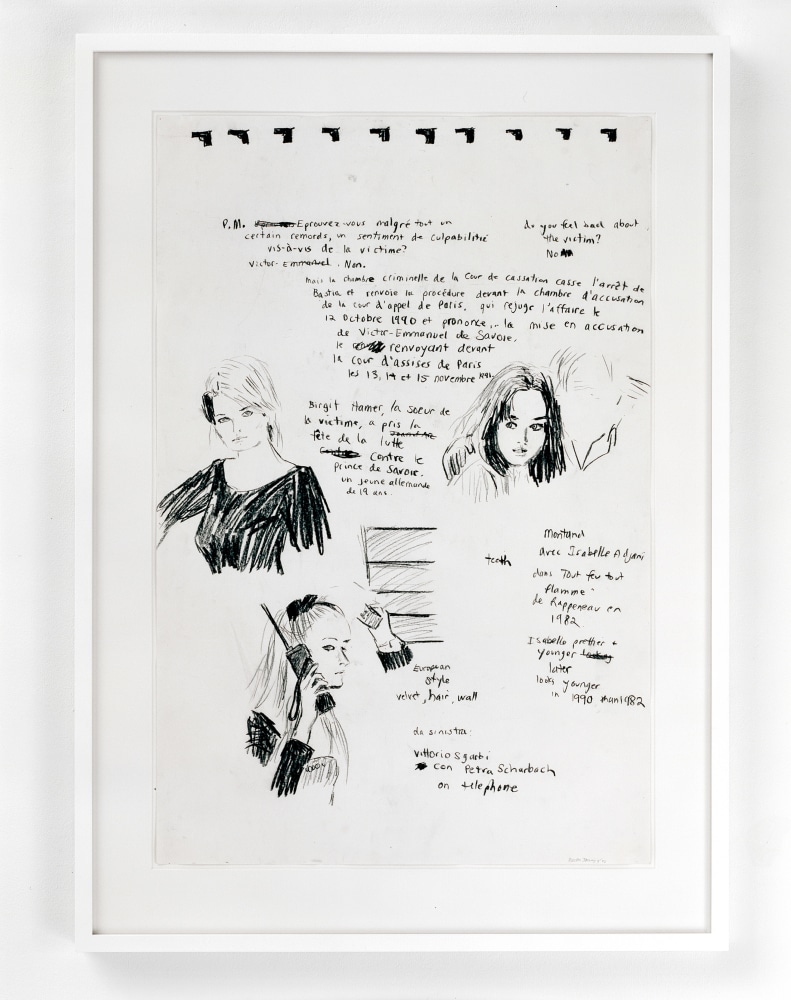 P.M. Eprouvez-vous malgré tout un
certain remords, un sentiment de culpabilitié
vis-à-vis de la victime?
Victor-Emmanuel. Non.
do you feel bad about
the victim?
No
Mais la chambre criminelle de la Cour de cassation casse l'arrêt de
Bastia et renvoie la procédure devant la chambre d'accusation
de la cour d'appel de Paris. qui rejuge l'affaire le
12 Octobre 1990 et prononce,.. la mise en accusation
de Victor-Emmanuel de Savoie,
le renvoyant devant
la Cour d'assises de Paris
les 13, 14 et 15 novembre 1991
Birgit Hamer, la soeur de
la victime, a pris la
tête de la lutte
contre le
prince de Savoie.
un jeune allemande
de 19 ans.
Montand
avec Isabelle Adjani
dans Tout feu tout
flamme
de Rappeneau en
1982
teeth
Isabelle prettier +
younger
later
looks younger
in 1990 than 1982
European
style
velvet, hair, wall
da sinistra:
Vittorio Sgarbi
con Petra Scharbach
on telephone